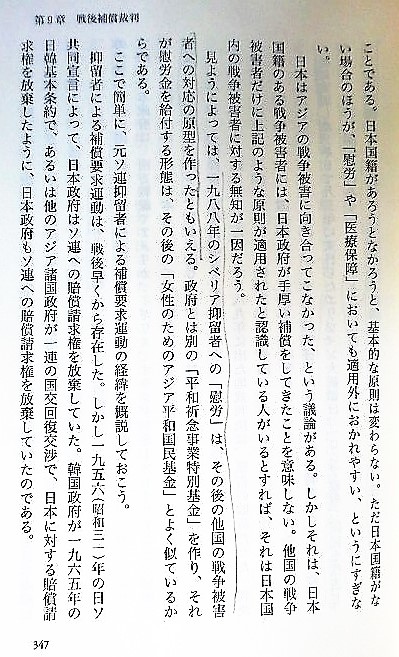 第9章　戦後補償裁判
ことである。日本国籍があろうとなかろうと、基本的な原則は変わらない。ただ日本国籍がな
い場合のほうが、「慰労」や「医療保障」においても適用外におかれやすい、というにすぎな
い。
日本はアジアの戦争被害に向き合ってこなかった、という議論がある。しかしそれは、日本
国籍のある戦争被害者には、日本政府が手厚い補償をしてきたことを意味しない。他国の戦争
被害者だけに上記のような原則が適用されたと認識している人がいるとすれば、それは日本国
内の戦争被害者に対する無知が一因だろう。
見ようによっては、一九八八年のシベリア抑留者への「慰労」は、その後の他国の戦争被害
者への対応の原型を作ったともいえる。政府とは別の「平和祈念事業特別基金」を作り、それ
が慰労金を給付する形態は、その後の「女性のためのアジア平和国民基金」とよく似ているか
らである。
ここで簡単に、元ソ連抑留者による補償要求運動の経緯を概説しておこう。
抑留者による補償要求運動は、戦後早くから存在した。しかし一九五六（昭和三一）年の日ソ
共同宣言によって、日本政府はソ連への賠償請求権を放棄していた。韓国政府が一九六五年の
日韓基本条約で、あるいは他のアジア諸国政府が一連の国交回復交渉で、日本に対する賠償請
求権を放棄したように、日本政府もソ連への賠償請求権を放棄していたのである。
347